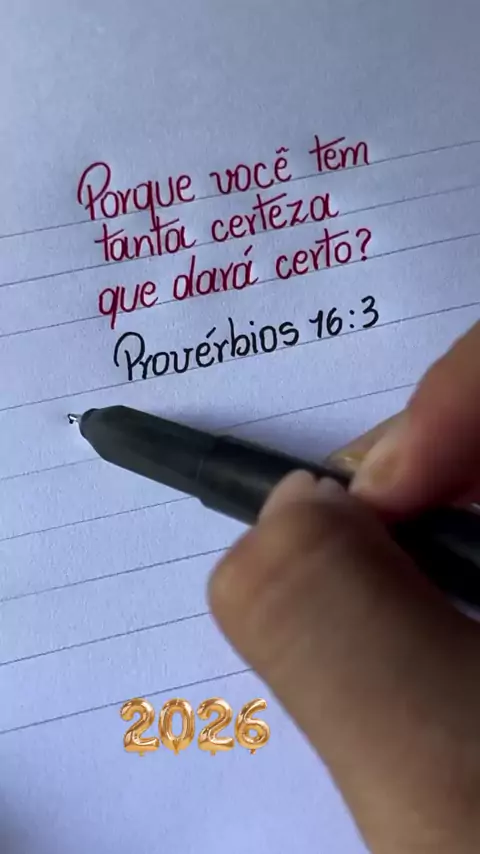 Porque você tem
tanta certeza
que dará certo?
Provérbios 16:3
2026